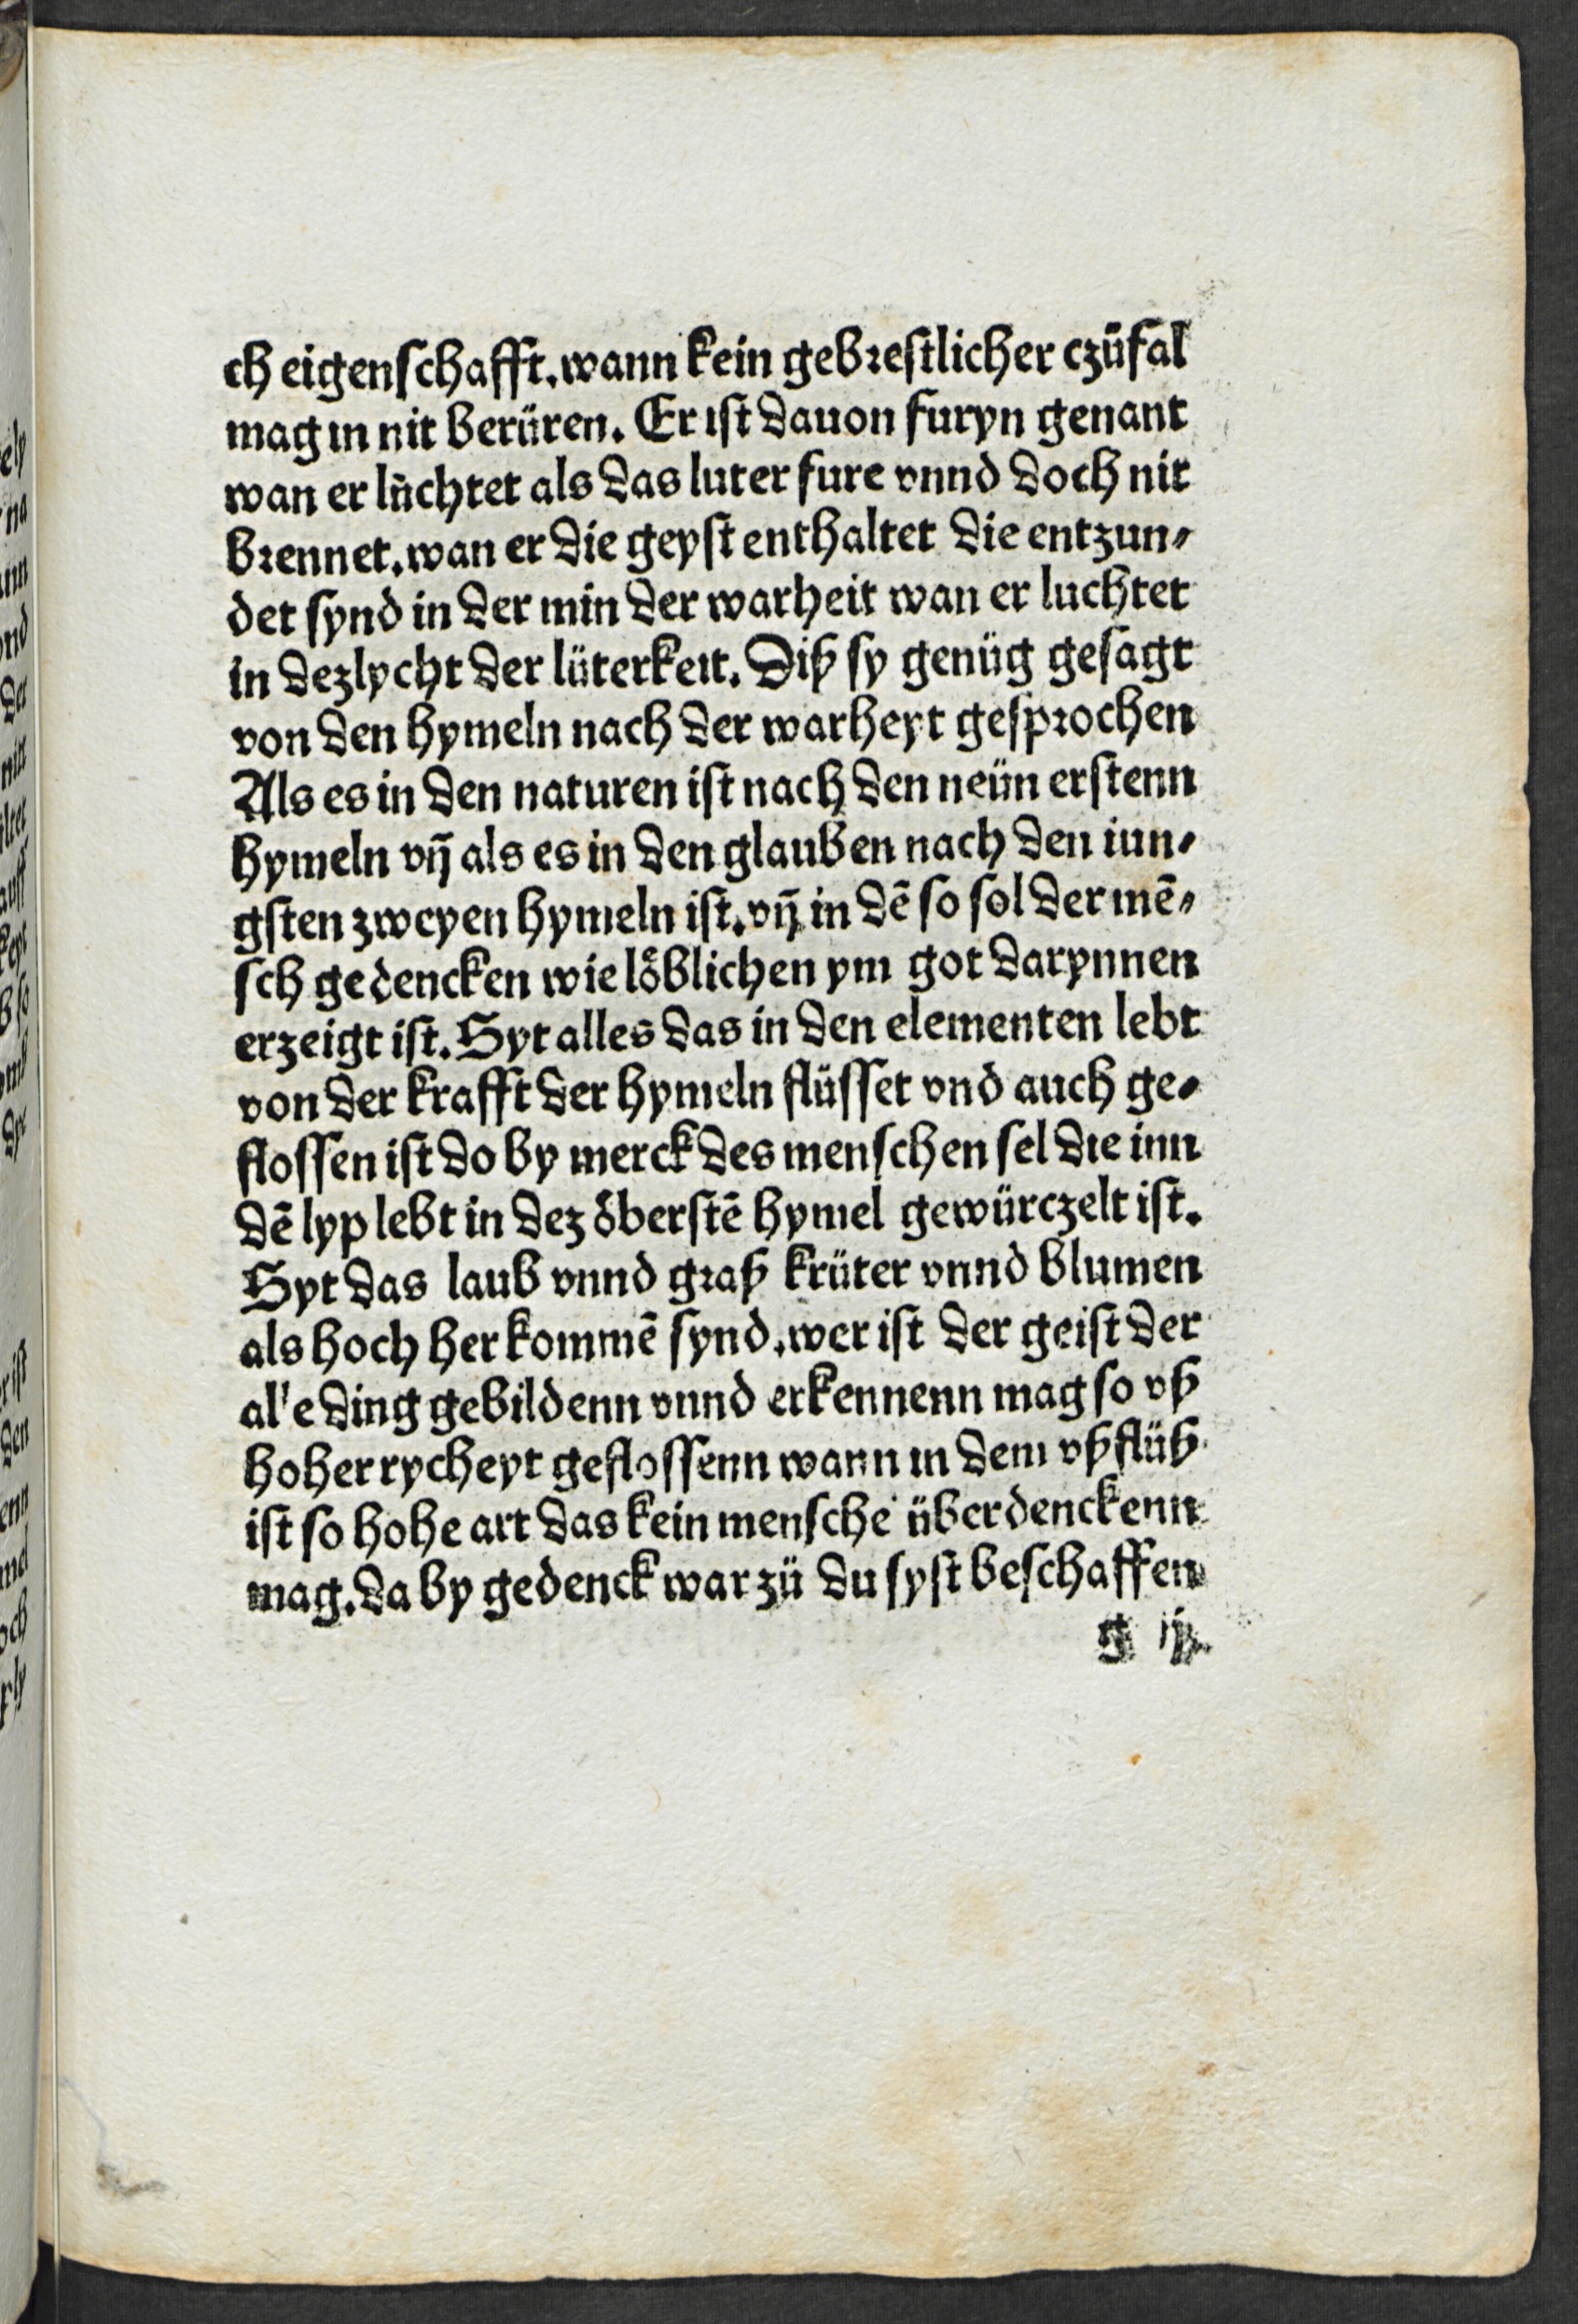 ch eigenschafft. wann kein gebrestlicher czüfal
mag in nit berüren. Er ist dauon furyn genant
wan er lüchtet als das luter fure vnnd doch nit
brennet. wan er die geyst enthaltet die entzun⸗
det synd in der min der warheit wan er luchtet
in dez lycht der lüterkeit. Diß sy genüg gesagt
von den hymeln nach der warheyt gesprochen
Als es in den naturen ist nach den neün erstenn
hymeln vñ als es in den glauben nach den iun⸗
gsten zweyen hymeln ist. vñ in dē so sol der mē⸗
sch gedencken wie löblichen ym got darynnen
erzeigt ist. Syt alles das in den elementen lebt
von der krafft der hymeln flüsset vnd auch ge⸗
flossen ist do by merck des menschen sel die inn
dē lyp lebt in dez öberstē hymel gewürczelt ist.
Syt das laub vnnd graß krüter vnnd blumen
als hoch her kommē synd. wer ist der geist der
alle ding gebildenn vnnd erkennenn mag so vß
hoher rycheyt geflossenn wann in dem vßflüß
ist so hohe art das kein mensche überdenckenn
mag. da by gedenck war zü du syst beschaffen
g ij